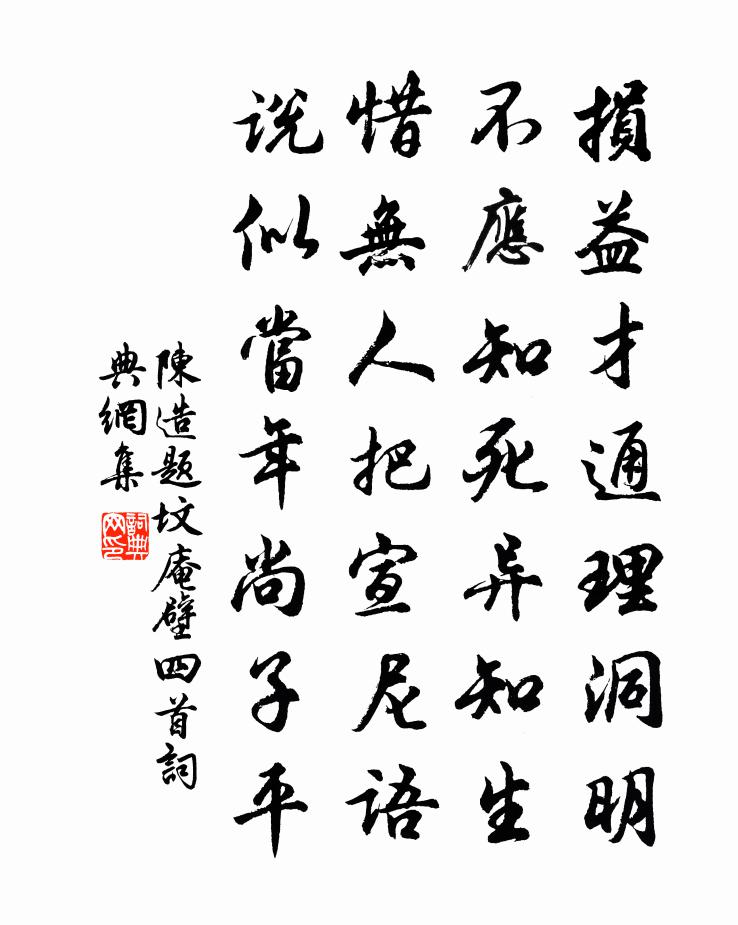 損益才通理洞明
不應知死异知生
惜無人把宣尼語
説似當年尚子平
陳造題坟庵壁四首詞
典網集
詞典
网印